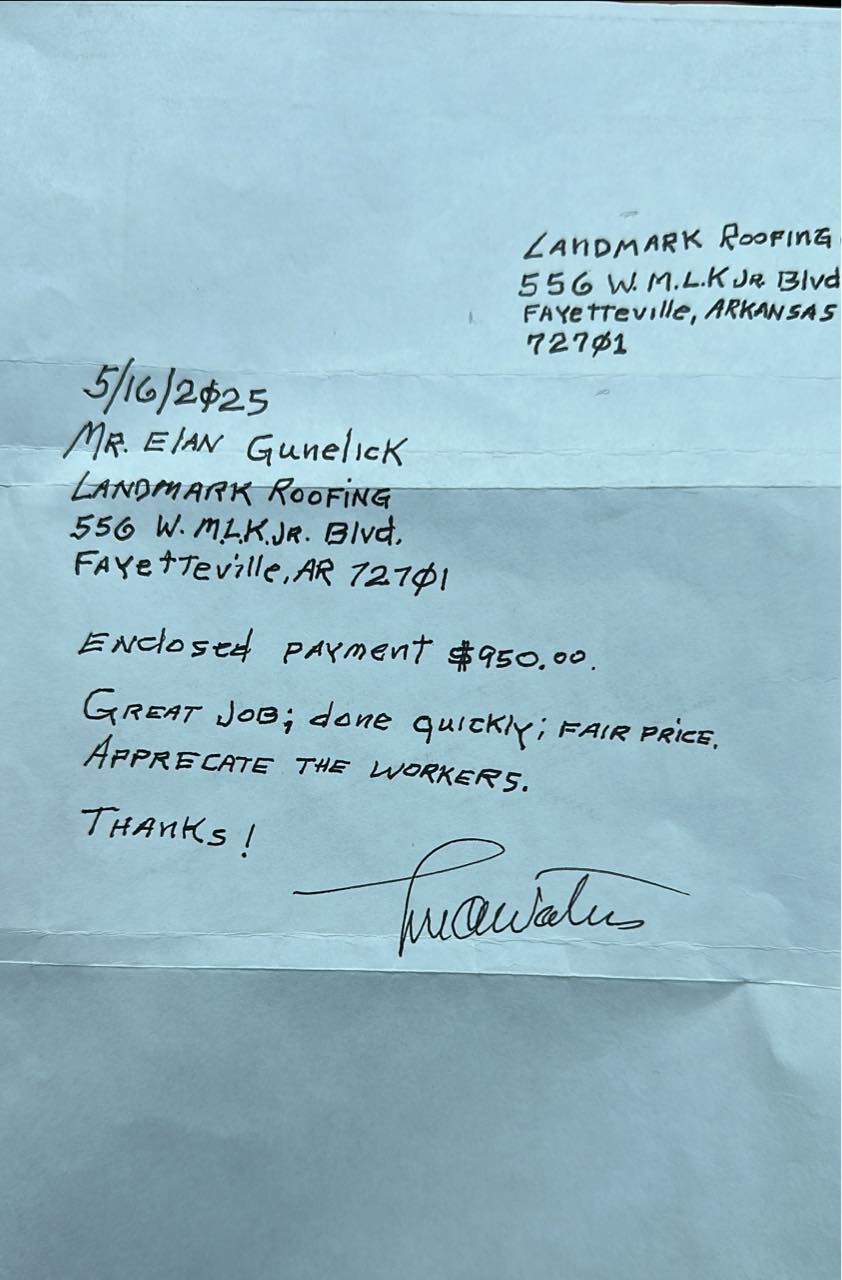 LANDMARK ROOFING
556 W. M.L.K JR. Blvd
FAYETTEVILLE, ARKANSAS
72701
5/16/2025
MR. EIAN Gunelick
LANDMARK ROOFING
556 W. M.L.K.JR. Blvd.
FAYETTEVILLE, AR 72701
Enclosed PAYMENT $950.00.
GREAT JOB; done quickly; FAIR PRICE.
APPRECATE THE WORKERS.
THANKS!